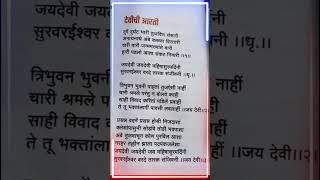 देवीची आरती
दुर्गे दुर्घट भारी तुजविण संसारी
अनाथनाथे अंबे करुणा विस्तारी
वारी वारी जन्ममरणांते वारी
हारी पडलो आता संकट निवारी ।।१।।
जयदेवी जयदेवी महिषासुरमर्दिनी
सुरवरईश्वर वरदे तारक संजीवनी ।।धृ.।।
त्रिभुवन भुवनी पाहता तुजऐसी नाही
चारी श्रमले परंतु न बोलवे काही
साही विवाद करिता पडिले प्रवाही
ते तू भक्तांलागी पावसी लवलाही ।।जय देवी।।२
प्रसन्न वदने प्रसन्न होसी निजदासां
क्लेशांपासूनी सोडवि तोडी भवपाशा
अंबे तुजवाचून कोण पुरविल आशा
नरहर तल्लीन झाला पदपंकजलेशा
जयदेवी जयदेवी जय महिषासुरमर्दिनी
सुरवरईश्वर वरदे तारक संजिवनी ।।जय देवी।।३